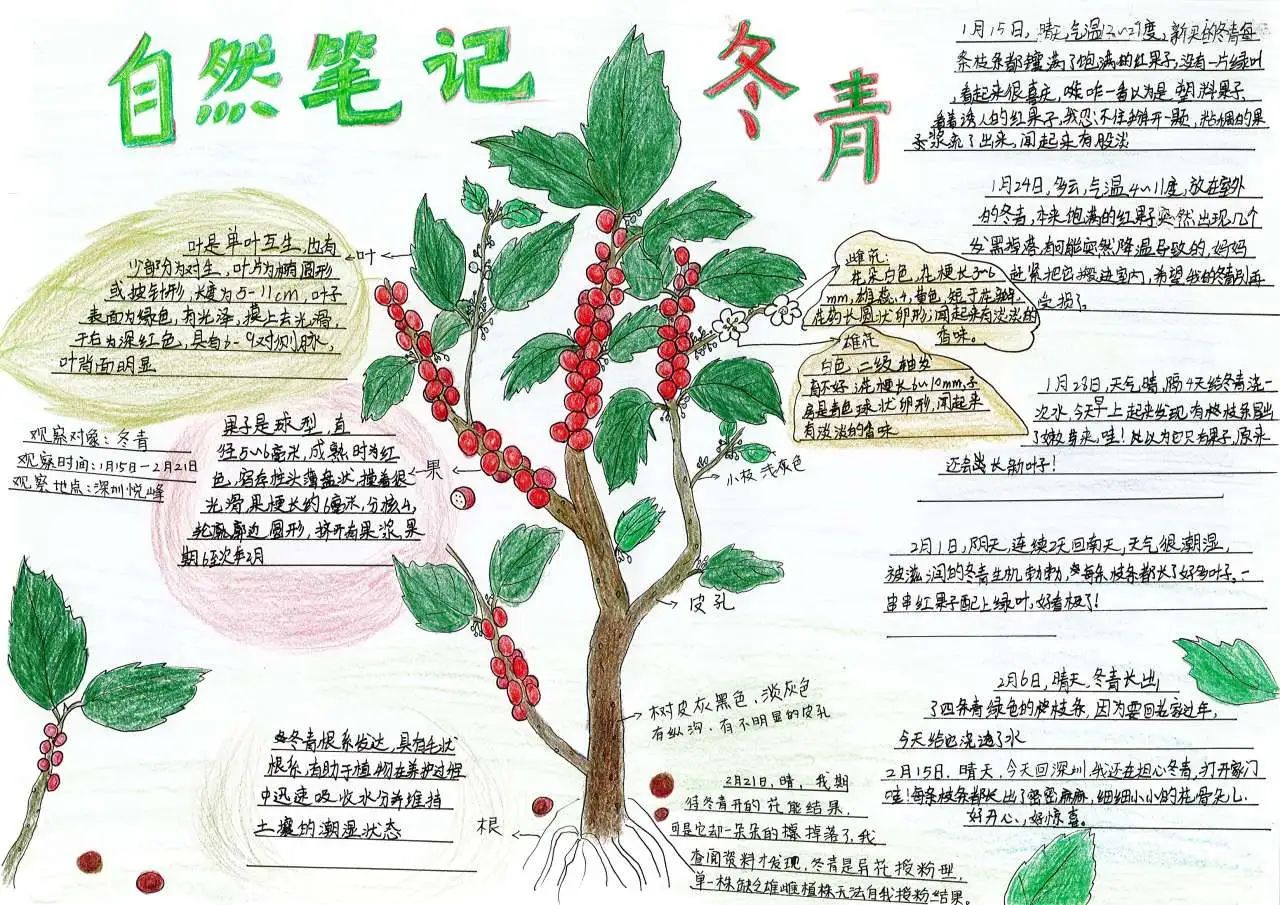 自然笔记
冬青
叶是单叶互生,也有
少部分为对生,叶片为椭圆形
或披针形,长度为5-11cm,叶子
表面为绿色,有光泽,摸上去光滑,
干后为深红色,具有6-9对侧脉,
叶背面明显
叶
观察对象:冬青
观察时间:1月15日-2月21日
观察地点:深圳悦峰
果子是球型,直
径5~6毫米,成熟时为红
色,宿存柱头薄盘状,摸着很
光滑,果梗长约6毫米,分核4,
轮廓边圆形,挤开有果浆,果
期6至次年2月
果
冬青根系发达,具有毛状
根系,有助于植物在养护过程
中迅速吸收水分并维持
土壤的潮湿状态
根
雌花:
花朵白色,花梗长3-6
mm,雄蕊,4,黄色,短于花瓣,
花药长圆状卵形;闻起来有淡淡的
香味。
雄花
白色,二级轴发
育不好,花梗长6~10mm,子
房是青色球状卵形,闻起来
有淡淡的香味
小枝浅灰色
皮孔
树皮灰黑色、淡灰色
有纵沟,有不明显的皮孔
1月15日,晴天,气温12~21度,新买的冬青每
条枝条都缠满了饱满的红果子,没有一片绿叶
,看起来很喜庆,咋一看以为是塑料果子,
看着诱人的红果子,我忍不住掰开一颗,粘稠的果
浆流了出来,闻起来有股淡
1月24日,多云,气温4~11度,放在室外
的冬青,本来饱满的红果子突然出现几个
发黑掉落,有可能突然降温导致的,妈妈
赶紧把它搬进室内,希望我的冬青别再
受损了。
1月28日,天气晴,隔4天给冬青浇一
次水,今天早上起来发现有些枝条冒出
了嫩芽来,哇!我以为它只有果子,原来
还会长新叶子!
2月1日,阴天,连续2天回南天,天气很潮湿,
被滋润的冬青生机勃勃,每条枝条都长了好多叶子,一
串串红果子配上绿叶,好看极了!
2月6日,晴天,冬青长出
了四条青绿色的枝条,因为要回老家过年,
今天给它浇透了水
2月15日,晴天,今天回深圳,我还在担心冬青,打开家门
哇!每条枝条都长出了密密麻麻,细细小小的花骨朵儿,
好开心,好惊喜。
2月21日,晴,我期
待冬青开的花能结果,
可是它却一朵朵的掉落了,我
查阅资料才发现,冬青是异花授粉型,
单一株缺乏雄雌植株无法自我授粉结果。